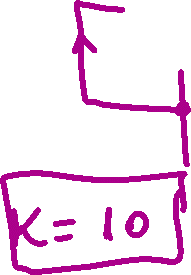 K = 10